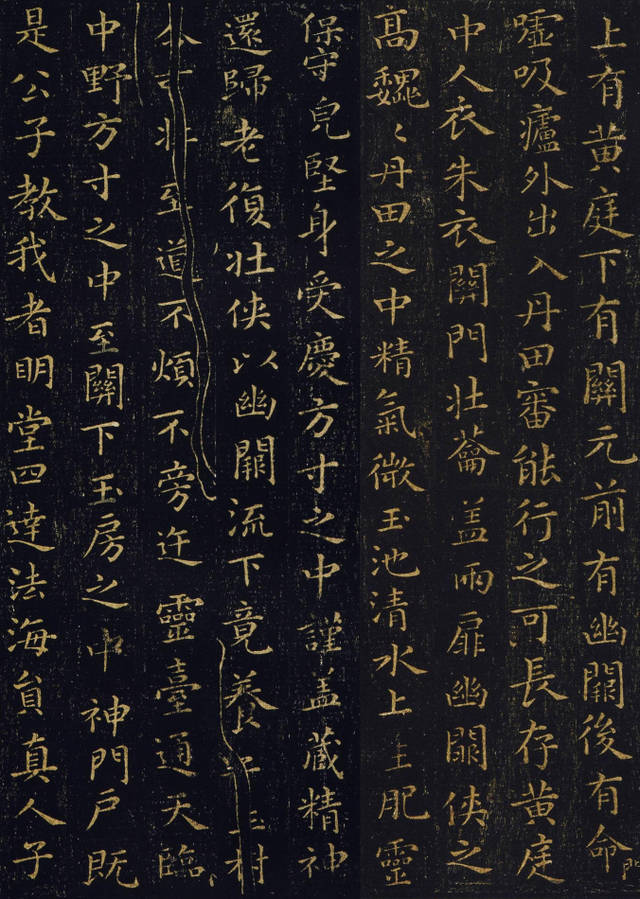 上有黄庭下有關元前有幽闕後有命門
嘘吸廬外出入丹田審能行之可長存黄庭
中人衣朱衣關門壯蘥盖兩扉幽闕侠之
高魏〻丹田之中精氣微玉池清水上生肥靈
保守皃堅身受慶方寸之中謹盖藏精神
還歸老復壯侠以幽闕流下竟養子玉树
令可壯至道不煩不旁迕靈臺通天臨
中野方寸之中至關下玉房之中神門戶既
是公子教我者明堂四達法海員真人子